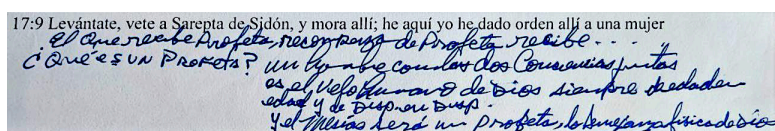 17:9 Levántate, vete a Sarepta de Sidón, y mora allí; he aquí yo he dado orden allí a una mujer
El que recibe Profeta, recompensa de Profeta recibe...
¿Qué es un Profeta? un hombre con las dos Conciencias juntas
es el Velo humano de Dios siempre de edad en
edad y de Disp. en Disp.
y el Mesías será un Profeta, la semejanza física de Dios